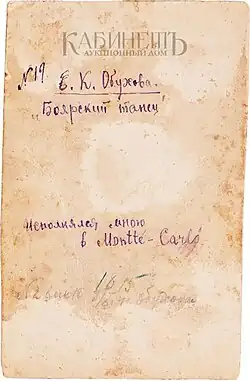 КАБИНЕТЪ
АУКЦИОННЫЙ ДОМ
№19. Е. К. Обухова.
"Боярский танец
Исполнялся мною
в Montte-Carlo
1615